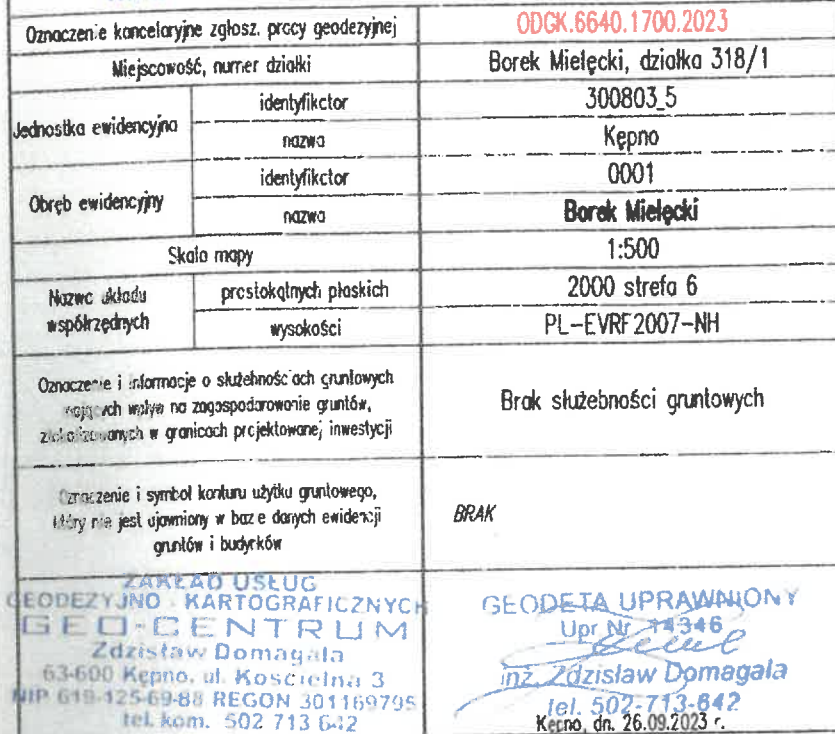 Oznaczenie kancelaryjne zgłosz. pracy geodezyjnej ODGK.6640.1700.2023
Miejscowość, numer działki Borek Mielęcki, działka 318/1
Jednostka ewidencyjna identyfikator 300803_5
nazwa Kępno
Obręb ewidencyjny identyfikator 0001
nazwa Borek Mielęcki
Skala mapy 1:500
Nazwa układu współrzędnych prostokątnych płaskich 2000 strefa 6
wysokości PL-EVRF2007-NH
Oznaczenie i informacje o służebnościach gruntowych
mających wpływ na zagospodarowanie gruntów,
zlokalizowanych w granicach projektowanej inwestycji
Brak służebności gruntowych
Oznaczenie i symbol konturu użytku gruntowego,
który nie jest ujawniony w bazie danych ewidencji
gruntów i budynków
BRAK
ZAKŁAD USŁUG
GEODEZYJNO - KARTOGRAFICZNYCH
GEO-CENTRUM
Zdzisław Domagała
63-600 Kępno, ul. Kościelna 3
NIP 619-125-69-88 REGON 301169795
tel. kom. 502 713 642
GEODETA UPRAWNIONY
Upr. Nr 14346
inż. Zdzisław Domagała
tel. 502-713-642
Kępno, dn. 26.09.2023 r.